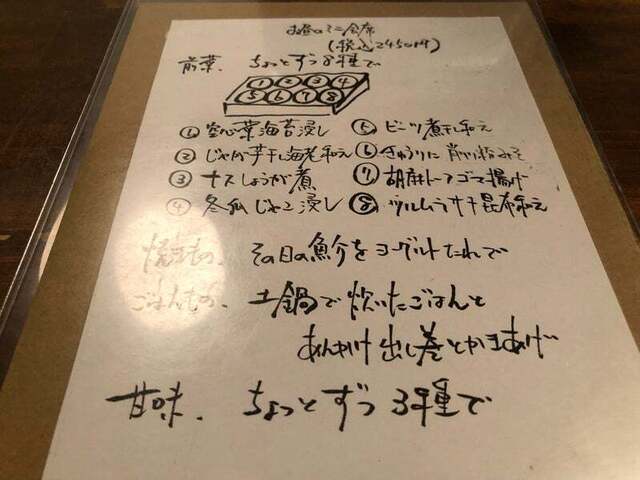 お昼のミニ会席
(税込2450円)
前菜、ちょっとずつ8種で
① ② ③ ④
⑤ ⑥ ⑦ ⑧
① 空心菜海苔浸し
② じゃが芋干し海老和え
③ ナスしょうが煮
④ 冬瓜じゃこ浸し
⑤ ビーツ煮干し和え
⑥ きゅうりに 肖り粉みそ
⑦ 胡麻トーフゴマ揚げ
⑧ ツルムラサキ昆布和え
焼きもの、その日の魚介をヨーグルトたれで
ごはんもの、土鍋で炊いたごはんと
あんかけ出し巻とかきあげ
甘味、ちょっとずつ3種で